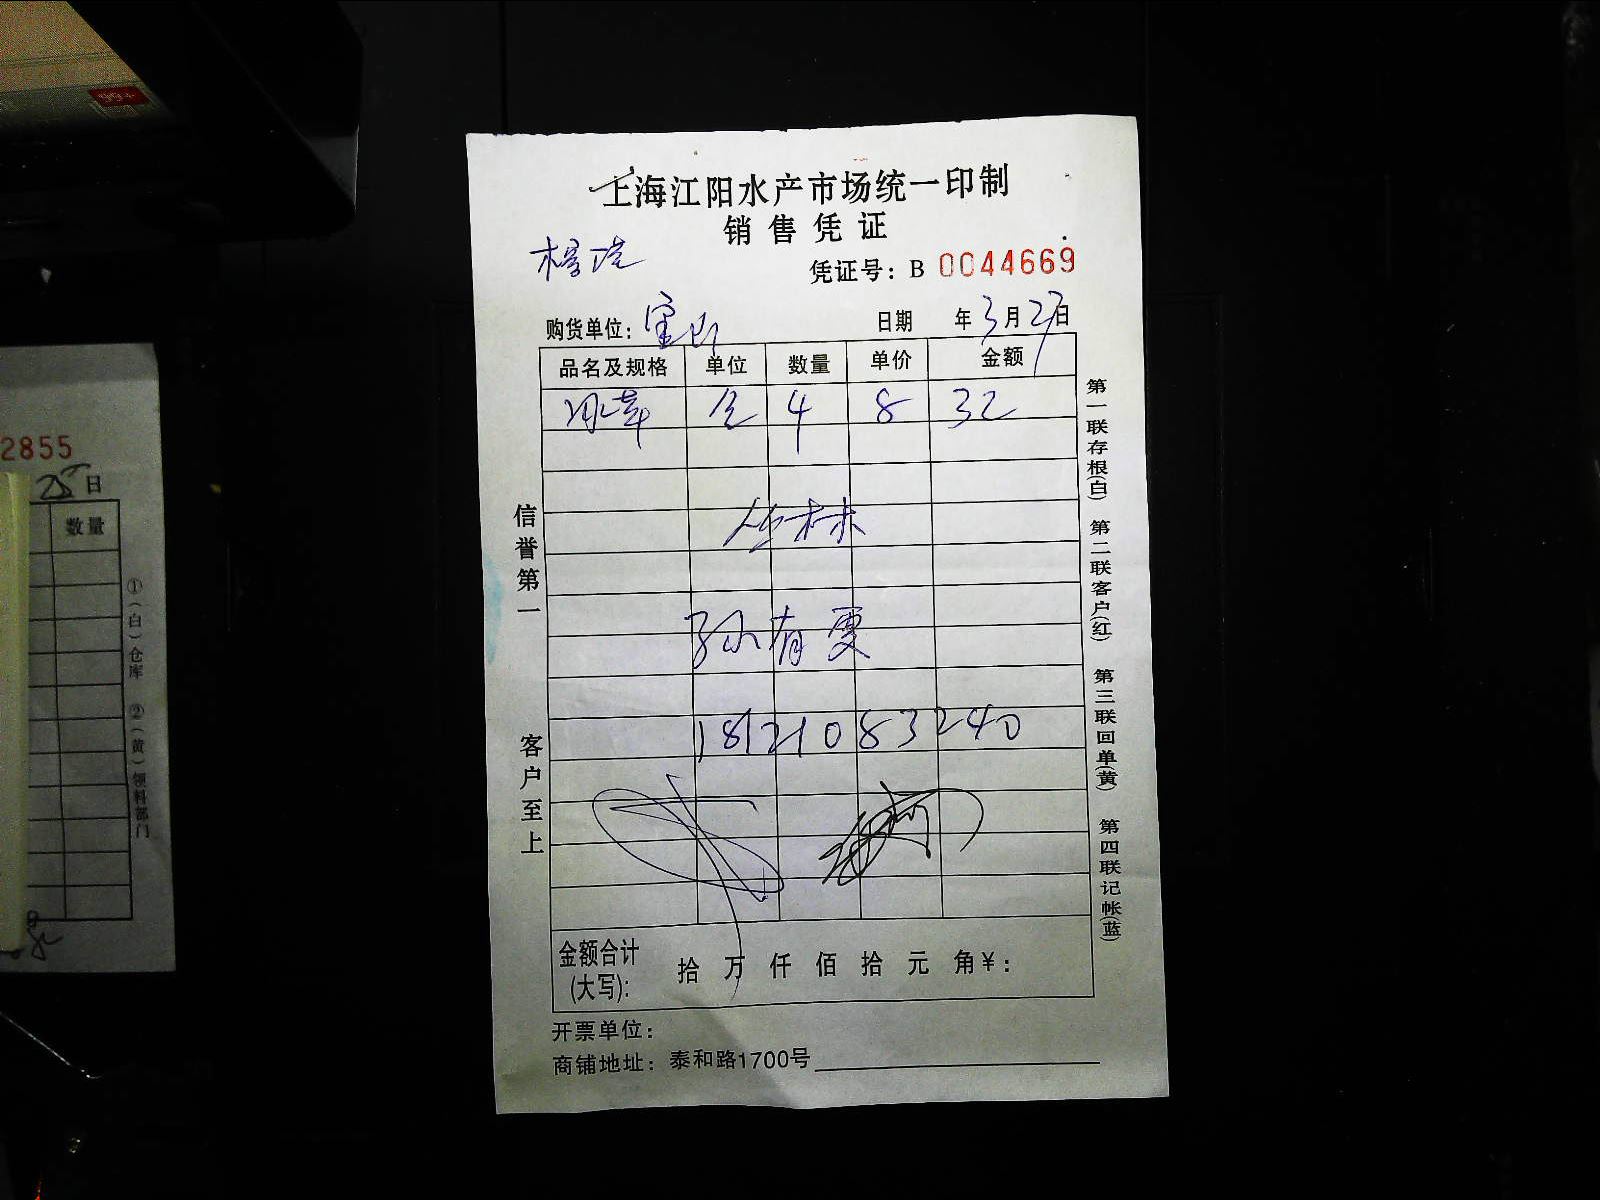 上海江阳水产市场统一印制
销售凭证
凭证号：B 0044669
购货单位：宝山 日期 年3月27日
品名及规格 单位 数量 单价 金额
4 8 32
丛林
孙有更
18121083240
信誉第一
客户至上
第一联存根(白) 第二联客户(红) 第三联回单(黄) 第四联记帐(蓝)
金额合计(大写): 拾 万 仟 佰 拾 元 角¥:
开票单位：
商铺地址：泰和路1700号
99+
2855
25日
数量
①(白)仓库 ②(黄)领料部门